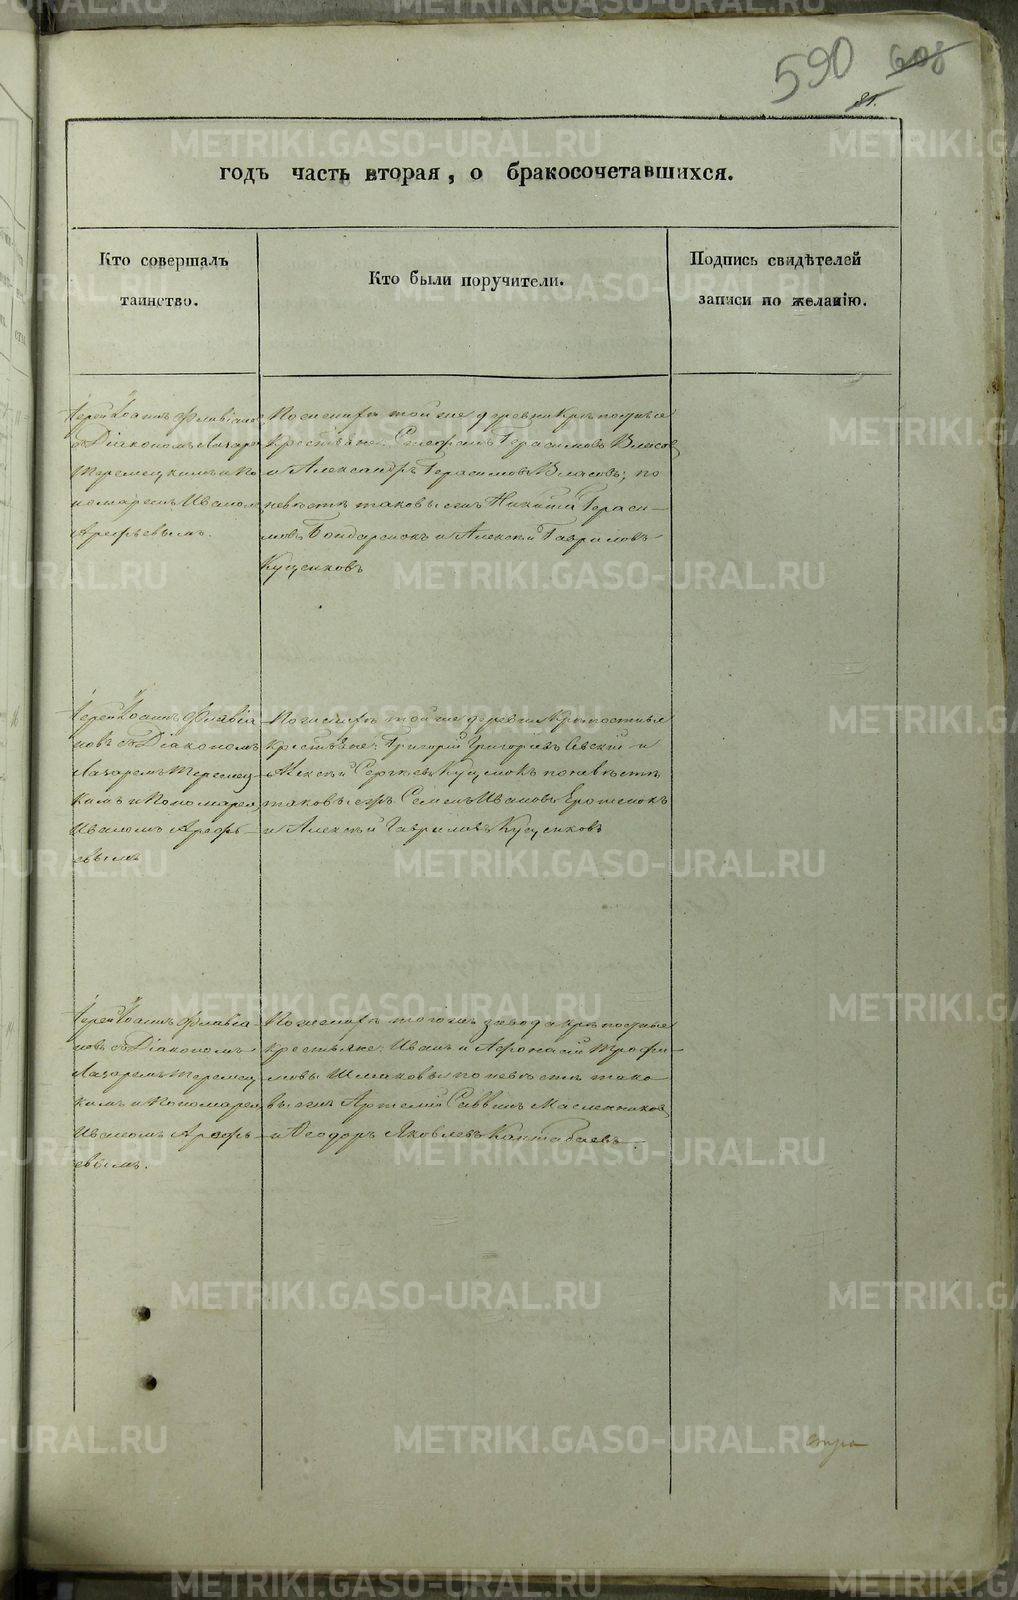 590 608
81.
годъ часть вторая, о бракосочетавшихся.
Кто совершалъ
таинство.
Кто были поручители.
Подпись свидѣтелей
записи по желанію.
Іерей Іоаннъ Флавіано
Діакономъ Лазаре
Теремецкимъ и По
номаремъ Иваномъ
Арефьевымъ.
По женихѣ той же деревни Крѣпостные
крестьяне: Герасимовъ Власов
и Александръ Герасимовъ Власовъ; по
невѣстѣ таковые Никита Гераси-
мовъ Бондаренокъ и Алексѣй Гавриловъ
Куценковъ
Іерей Іоаннъ Флавіа
новъ съ Діакономъ
Лазаремъ Теремец
кимъ и Пономарем
Иваномъ Арефь-
евымъ
По женихѣ той же деревни Крѣпостные
крестьяне: Григорій Григорьевъ Севскій и
Алексѣй Сергѣевъ Куценокъ по невѣстѣ
таковые Семенъ Ивановъ Ерошенокъ
и Алексѣй Гавриловъ Куценковъ
Іерей Іоаннъ Флавіа
новъ съ Діакономъ
Лазаремъ Теремец
кимъ и Пономарем
Иваномъ Арефь-
евымъ.
По женихѣ того же завода крѣпостные
крестьяне: Иванъ и Афонасій Трофи-
мовы Шмаковы по невѣстѣ тако
вые Артемій Саввинъ Масленников
и Ѳеодоръ Яковлевъ Кантабаевъ.
METRIKI.GASO-URAL.RU